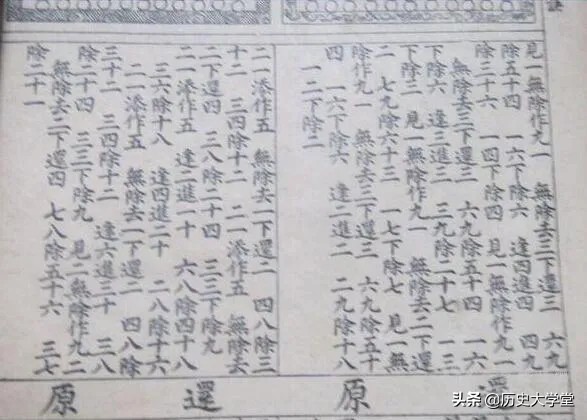 見一無除作九一 無除去三下還三 六九
除五十四 一六下除六 逢四進四 四九
除三十六 一四下除四 見一無除作九一
無除去三下還三 六九除五十四 一六
下除六 逢三進三 三九除二十七 一三
下除三 見一無除作九一 無除去二下還
二 七九除六十三 一七下除七 見一無
除作九一 無除去三下還三 六九除五十
四 一六下除六 逢二進二 二九除十八
一二下除二
還原
二一添作五 無除去一下還一 四八除三
十二 三四除十二 二一添作五 無除去
二下還四 三八除二十四 三三下除九
二一添作五 逢二進一十 六八除四十八
三六除十八 逢四進二十 二八除十六
二一添作五 無除去一下還二 四八除
三十二 三四除十二 逢六進三十 三八
除二十四 三三下除九 見二無除作九二
無除去二下還四 七八除五十六 三七
除二十一
還原
头条 @历史大学堂